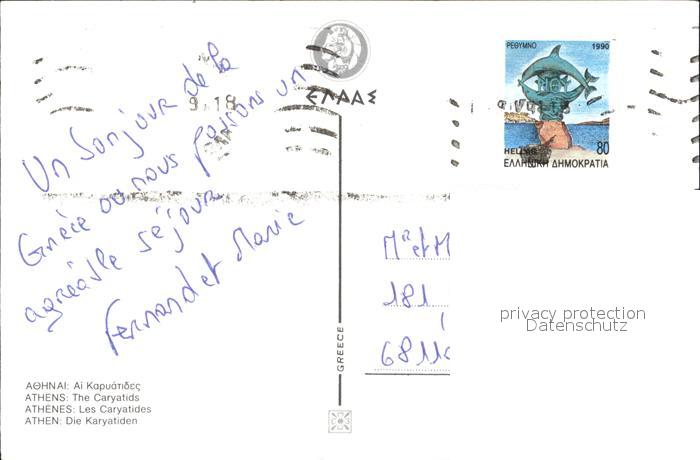 Un bonjour de la
Grèce ou nous passons un
agréable séjour
Fernand et Marie
ΑΘΗΝΑΙ: Αἱ Καρυάτιδες
ATHENS: The Caryatids
ATHÈNES: Les Caryatides
ATHEN: Die Karyatiden
9.18
ΕΛΛΑΣ
GREECE
ΡΕΘΥΜΝΟ 1990
HELLAS 80
ΕΛΛΗΝΙΚΗ ΔΗΜΟΚΡΑΤΙΑ
Mr et M
181
6811
privacy protection
Datenschutz